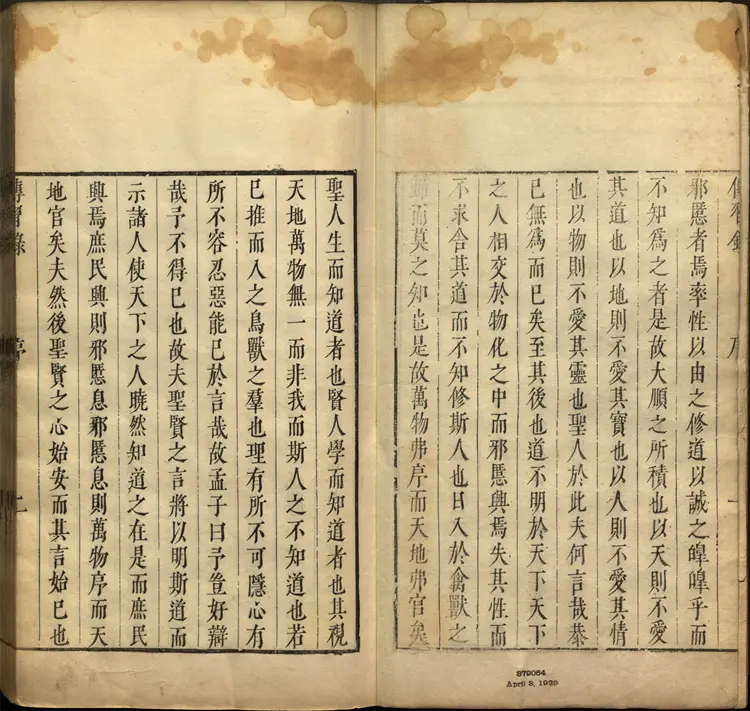 傳習錄 序 一
邪慝者焉率性以由之修道以誠之皥皥乎而
不知爲之者是故大順之所積也以天則不愛
其道也以地則不愛其寶也以人則不愛其情
也以物則不愛其靈也聖人於此夫何言哉恭
已無爲而已矣至其後也道不明於天下天下
之人相交於物化之中而邪慝興焉失其性而
不求舍其道而不知修斯人也日入於禽獸之
歸而莫之知也是故萬物弗序而天地弗官矣
聖人生而知道者也賢人學而知道者也其視
天地萬物無一而非我而斯人之不知道也若
已推而入之鳥獸之羣也理有所不可隱心有
所不容忍惡能已於言哉故孟子曰予豈好辯
哉予不得已也故夫聖賢之言將以明斯道而
示諸人使天下之人曉然知道之在是而庶民
興焉庶民興則邪慝息邪慝息則萬物序而天
地官矣夫然後聖賢之心始安而其言始已也
傳習錄 序 二
879064
April 3, 1929